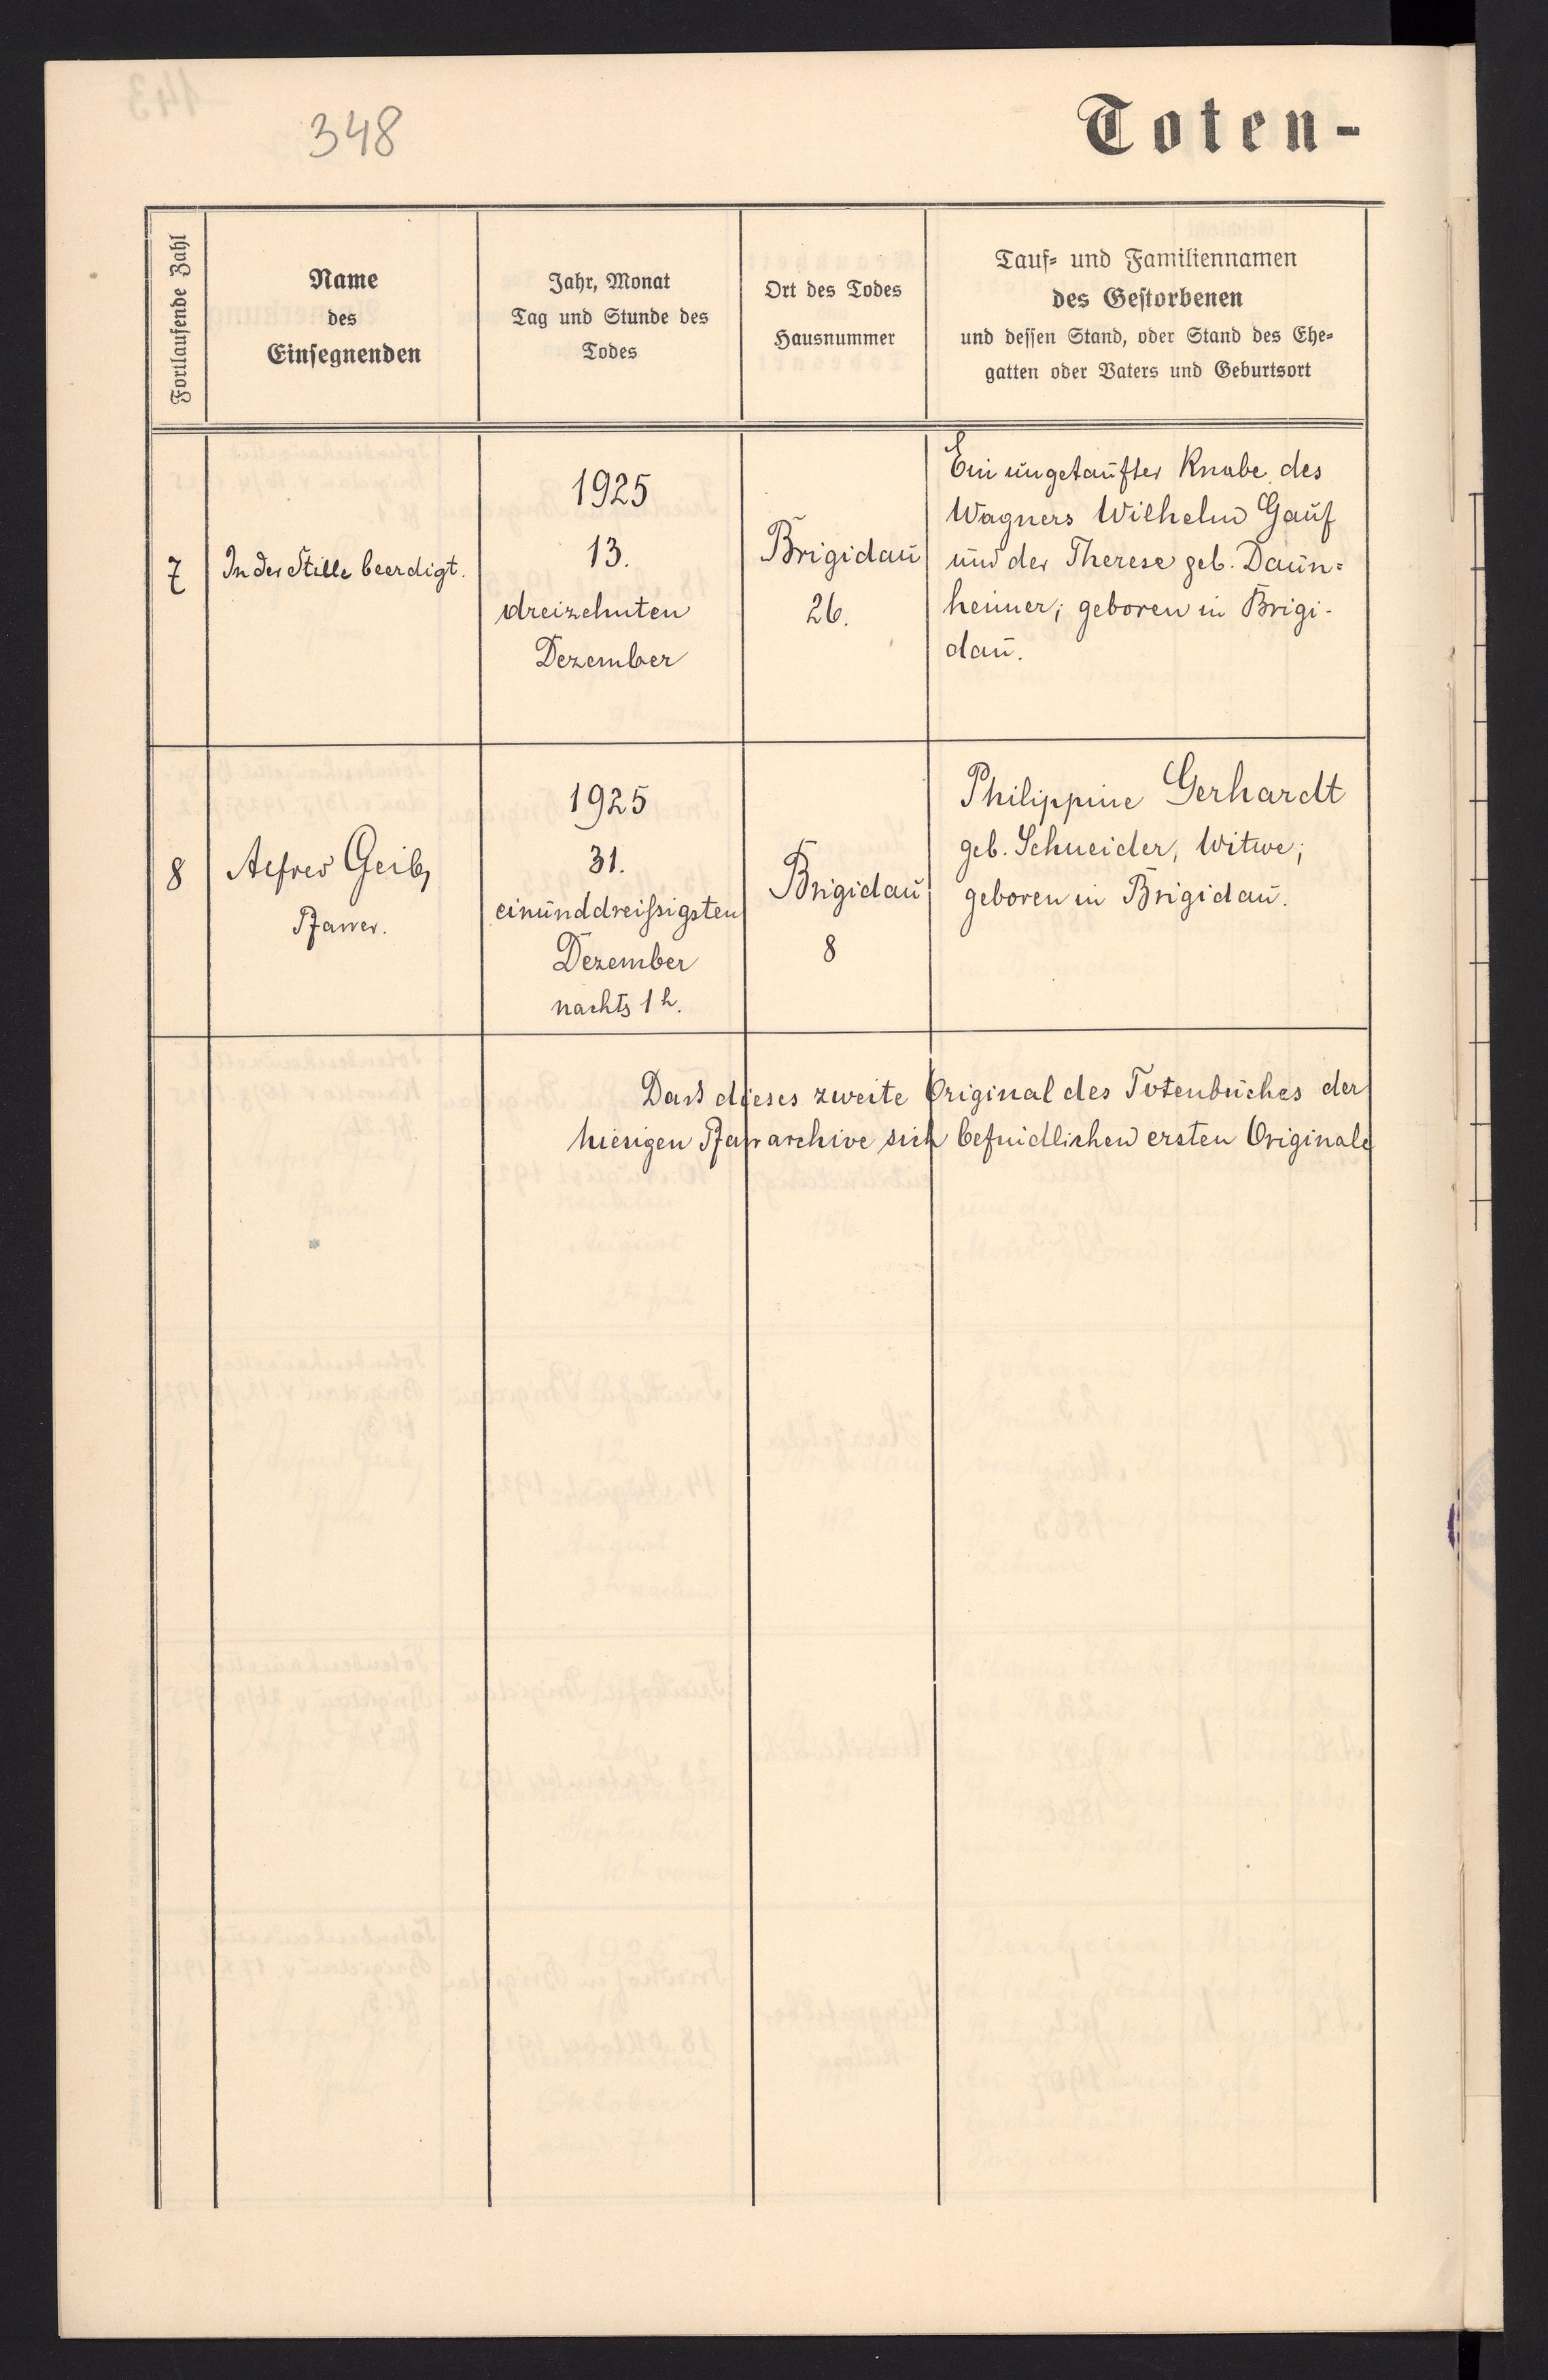 348
Toten-
Fortlaufende Zahl
Name
des
Einsegnenden
Jahr, Monat
Tag und Stunde des
Todes
Ort des Todes
Hausnummer
Tauf- und Familiennamen
des Gestorbenen
und dessen Stand, oder Stand des Ehe-
gatten oder Vaters und Geburtsort
7
In der Stille beerdigt.
1925
13.
dreizehnten
Dezember
Brigidau
26.
Ein ungetaufter Knabe des
Wagners Wilhelm Gauf
und der Therese geb. Daun-
heimer; geboren in Brigi-
dau.
8
Alfred Geib,
Pfarrer.
1925
31.
einunddreißigsten
Dezember
nachts 1 h.
Brigidau
8
Philippine Gerhardt
geb. Schneider, Witwe;
geboren in Brigidau.
Dass dieses zweite Original des Totenbuches der
hiesigen Pfarrarchive sich befindlichen ersten Originale